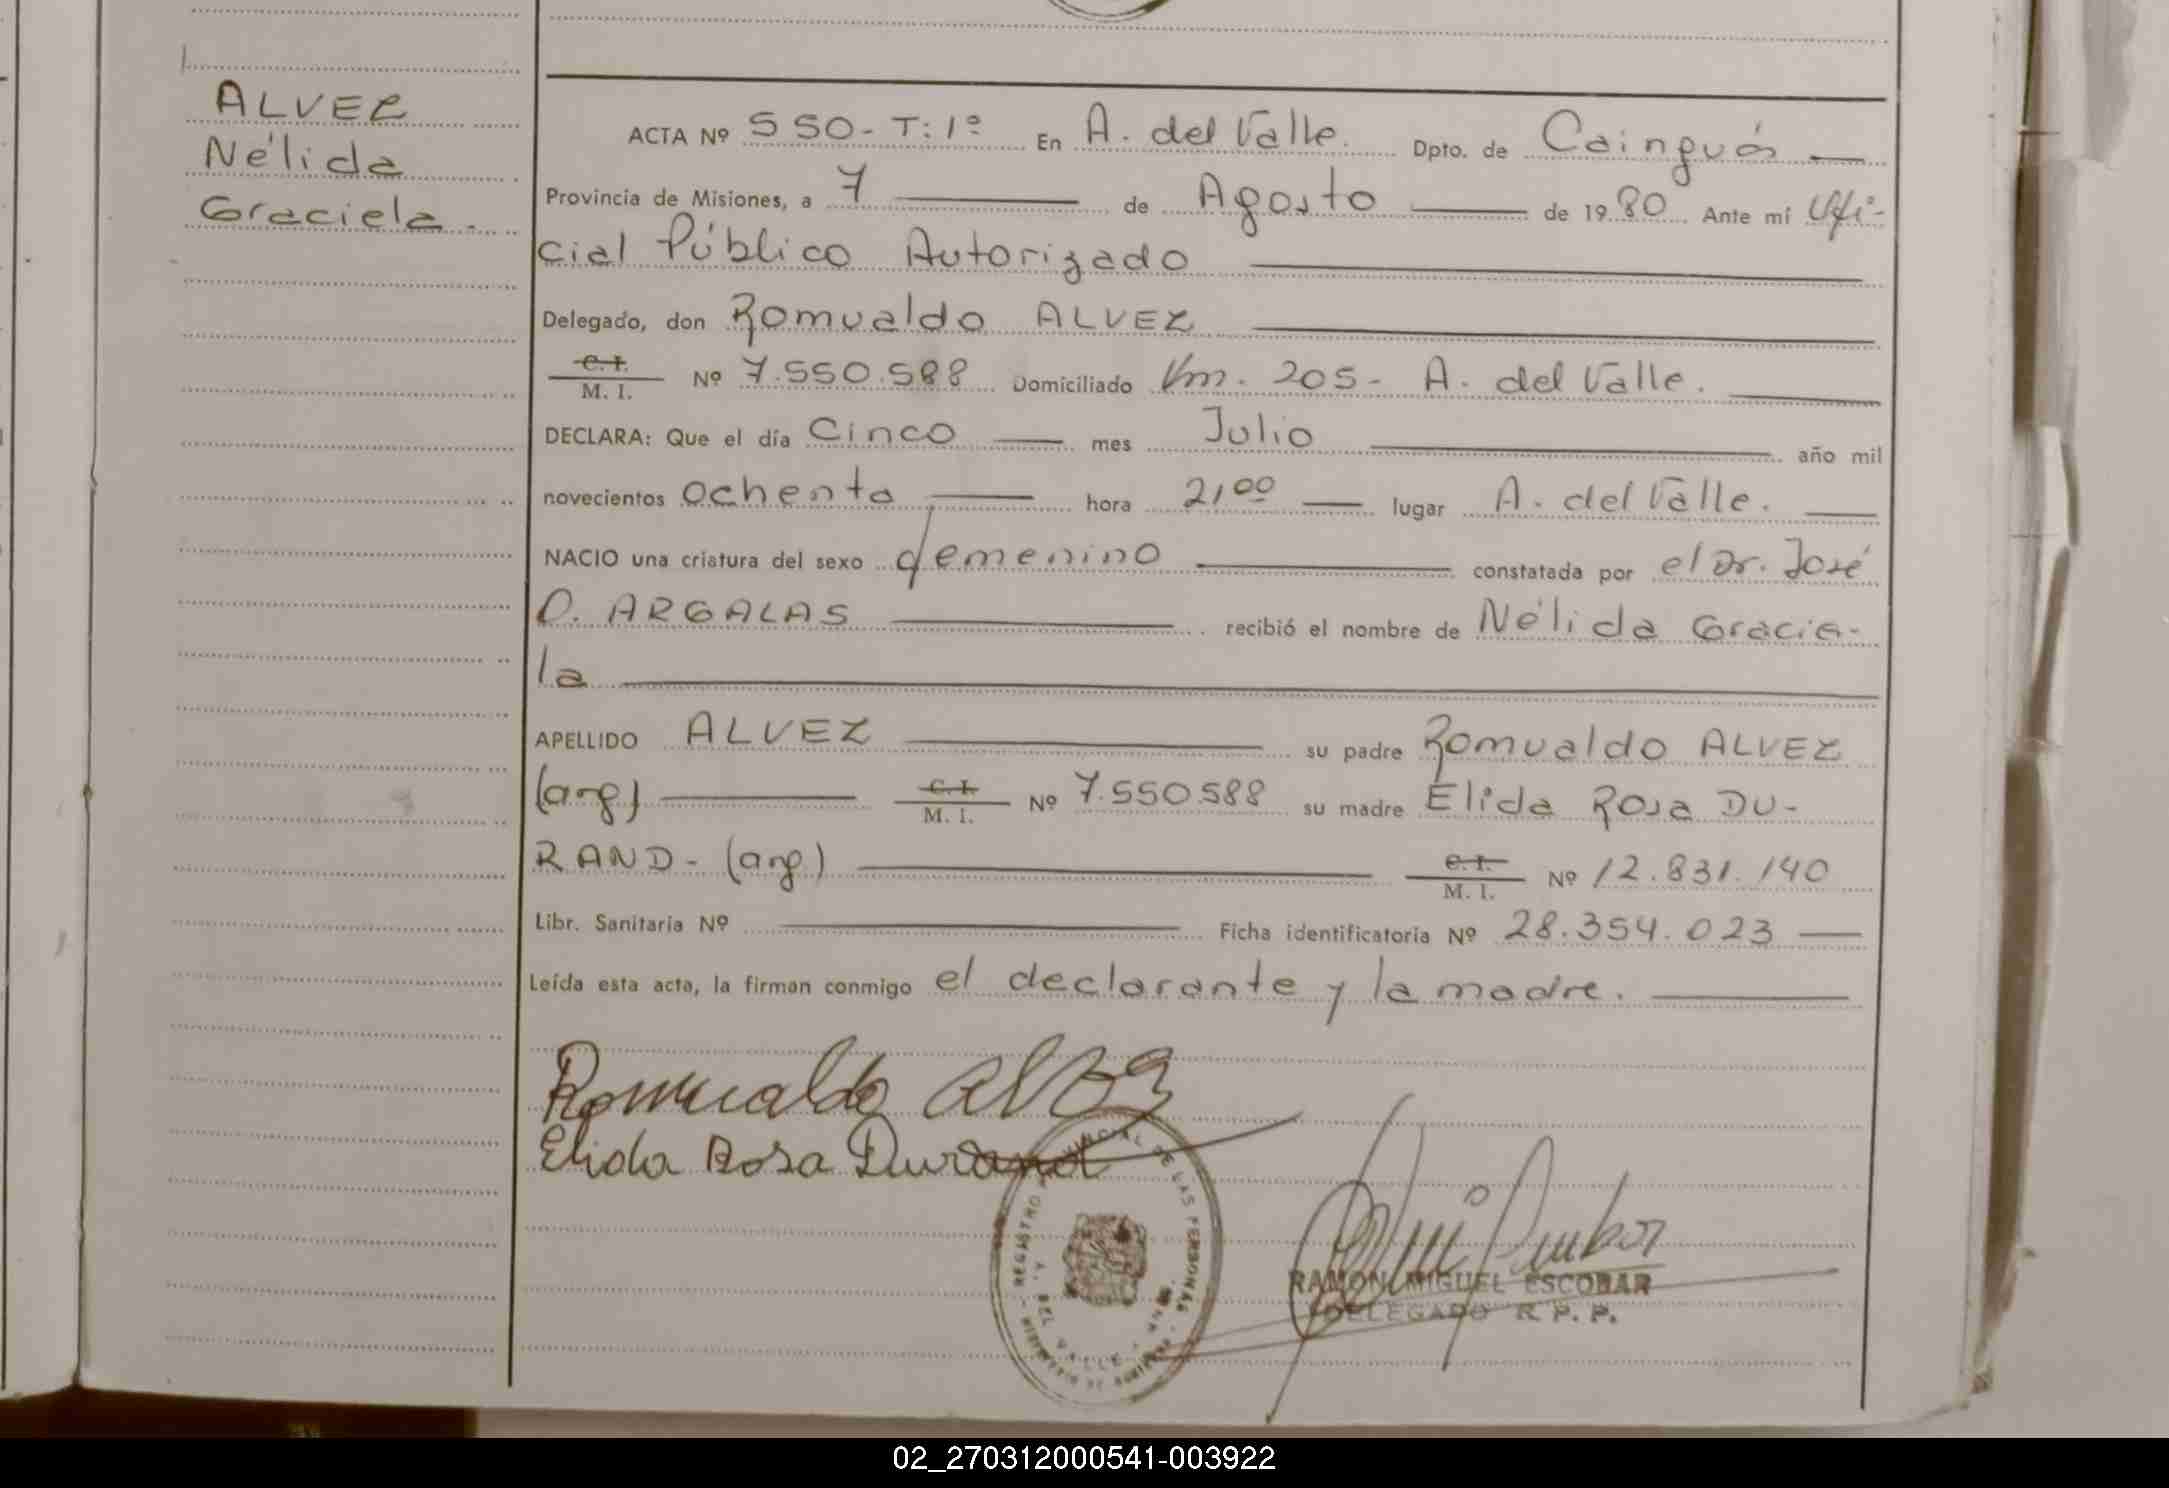 ALVEZ
Nélida
Graciela.
ACTA Nº 550-T:1º En A. del Valle. Dpto. de Cainguás
Provincia de Misiones, a 7 de Agosto de 1980 Ante mí Ofi-
cial Público Autorizado
Delegado, don Romualdo ALVEZ
C. I.
M. I. Nº 7.550.588 Domiciliado Km. 205- A. del Valle.
DECLARA: Que el día Cinco mes Julio año mil
novecientos ochenta hora 21,00 lugar A. del Valle.
NACIO una criatura del sexo femenino constatada por el Dr. José
O. ARGALAS recibió el nombre de Nélida Gracie-
la
APELLIDO ALVEZ su padre Romualdo ALVEZ
(arg) C. I. M. I. Nº 7.550.588 su madre Elida Rosa DU-
RAND- (arg) C. I. M. I. Nº 12.831.140
Libr. Sanitaria Nº Ficha identificatoria Nº 28.354.023
Leída esta acta, la firman conmigo el declarante y la madre.
Romualdo
Elida Rosa Durand
REGISTRO PROVINCIAL DE LAS PERSONAS
DEL VALLE
RAMON MIGUEL ESCOBAR
DELEGADO R. P. P.
02_270312000541-003922